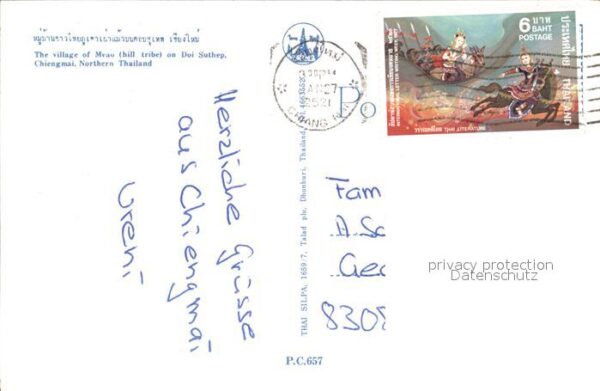 หมู่บ้านชาวไทยภูเขาเผ่าแม้วบนดอยสุเทพ เชียงใหม่
The village of Meao (hill tribe) on Doi Suthep,
Chiengmai, Northern Thailand
Herzliche Grüsse
aus Chiengmai
THAI SILPA, 1659/7, Talad plu, Dhonburi, Thailand,
P.C.657
CHIANG MAI
2521
6 บาท
BAHT
POSTAGE
ประเทศไทย THAILAND
INTERNATIONAL LETTER WRITING WEEK 1977
วรรณคดีไทย THAI LITERATURE
Fam
A. Sc
Ger
8309
privacy protection
Datenschutz